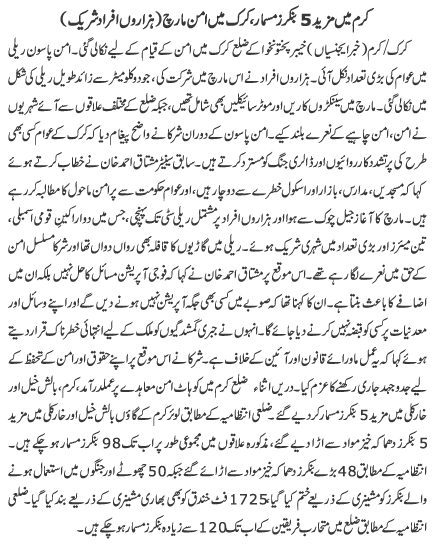 کرم میں مزید 5 بنکرز مسمار، کرک میں امن مارچ (ہزاروں افراد شریک)
کرک/کرم (خبر ایجنسیاں) خیبر پختونخوا کے ضلع کرک میں امن کے قیام کے لیے نکالی گئی۔ امن پاسون ریلی
میں عوام کی بڑی تعداد نکل آئی۔ ہزاروں افراد نے اس مارچ میں شرکت کی، جو دو کلومیٹر سے زائد طویل ریلی کی شکل
میں نکالی گئی۔ مارچ میں سینکڑوں کاریں اور موٹر سائیکلیں بھی شامل تھیں، جبکہ ضلع کے مختلف علاقوں سے آئے شہریوں
نے امن، امن چاہیے کے نعرے بلند کیے۔ امن پاسون کے دوران شرکا نے واضح پیغام دیا کہ کرک کے عوام کسی بھی
طرح کی پر تشدد کارروائیوں اور ڈالری جنگ کو مسترد کرتے ہیں۔ سابق سینیٹر مشتاق احمد خان نے خطاب کرتے ہوئے
کہا کہ مسجدیں، مدارس، بازار اور اسکول خطرے سے دوچار ہیں، اور عوام حکومت سے پر امن ماحول کا مطالبہ کر رہے
ہیں۔ مارچ کا آغاز جیل چوک سے ہوا اور ہزاروں افراد پر مشتمل ریلی سٹی تک پہنچی، جس میں دو اراکین قومی اسمبلی،
تین میئرز اور بڑی تعداد میں شہری شریک ہوئے۔ ریلی میں گاڑیوں کا قافلہ بھی رواں دواں تھا اور شرکا مسلسل امن
کے حق میں نعرے لگا رہے تھے۔ اس موقع پر مشتاق احمد خان نے کہا کہ فوجی آپریشن مسائل کا حل نہیں بلکہ ان میں
اضافے کا باعث بنتا ہے۔ ان کا کہنا تھا کہ صوبے میں کسی بھی جگہ آپریشن نہیں ہونے دیں گے اور اپنے وسائل اور
معدنیات پر کسی کو قبضہ نہیں کرنے دیا جائے گا۔ انہوں نے جبری گمشدگیوں کو ملک کے لیے انتہائی خطرناک قرار دیتے
ہوئے کہا کہ یہ عمل ماورائے قانون اور آئین کے خلاف ہے۔ شرکا نے اس موقع پر اپنے حقوق اور امن کے تحفظ کے
لیے جدوجہد جاری رکھنے کا عزم کیا۔ دریں اثناء ضلع کرم میں کوہاٹ امن معاہدے پر عملدرآمد، کرم، بالش خیل اور
خار کلی میں مزید 5 بنکرز مسمار کر دیے گئے۔ ضلعی انتظامیہ کے مطابق لوئر کرم کے گاؤں بالش خیل اور خار کلی میں مزید
5 بنکرز دھماکہ خیز مواد سے اڑا دیے گئے، مذکورہ علاقوں میں مجموعی طور پر اب تک 98 بنکرز مسمار ہو چکے ہیں۔
انتظامیہ کے مطابق 48 بڑے بنکرز دھماکہ خیز مواد سے اڑائے گئے جبکہ 50 چھوٹے اور جنگوں میں استعمال ہونے
والے بنکرز کو مشینری کے ذریعے ختم کیا گیا، 1725 فٹ خندق کو بھی بھاری مشینری کے ذریعے بند کیا گیا۔ ضلعی
انتظامیہ کے مطابق ضلع میں متحارب فریقین کے اب تک 120 سے زیادہ بنکرز مسمار ہو چکے ہیں۔